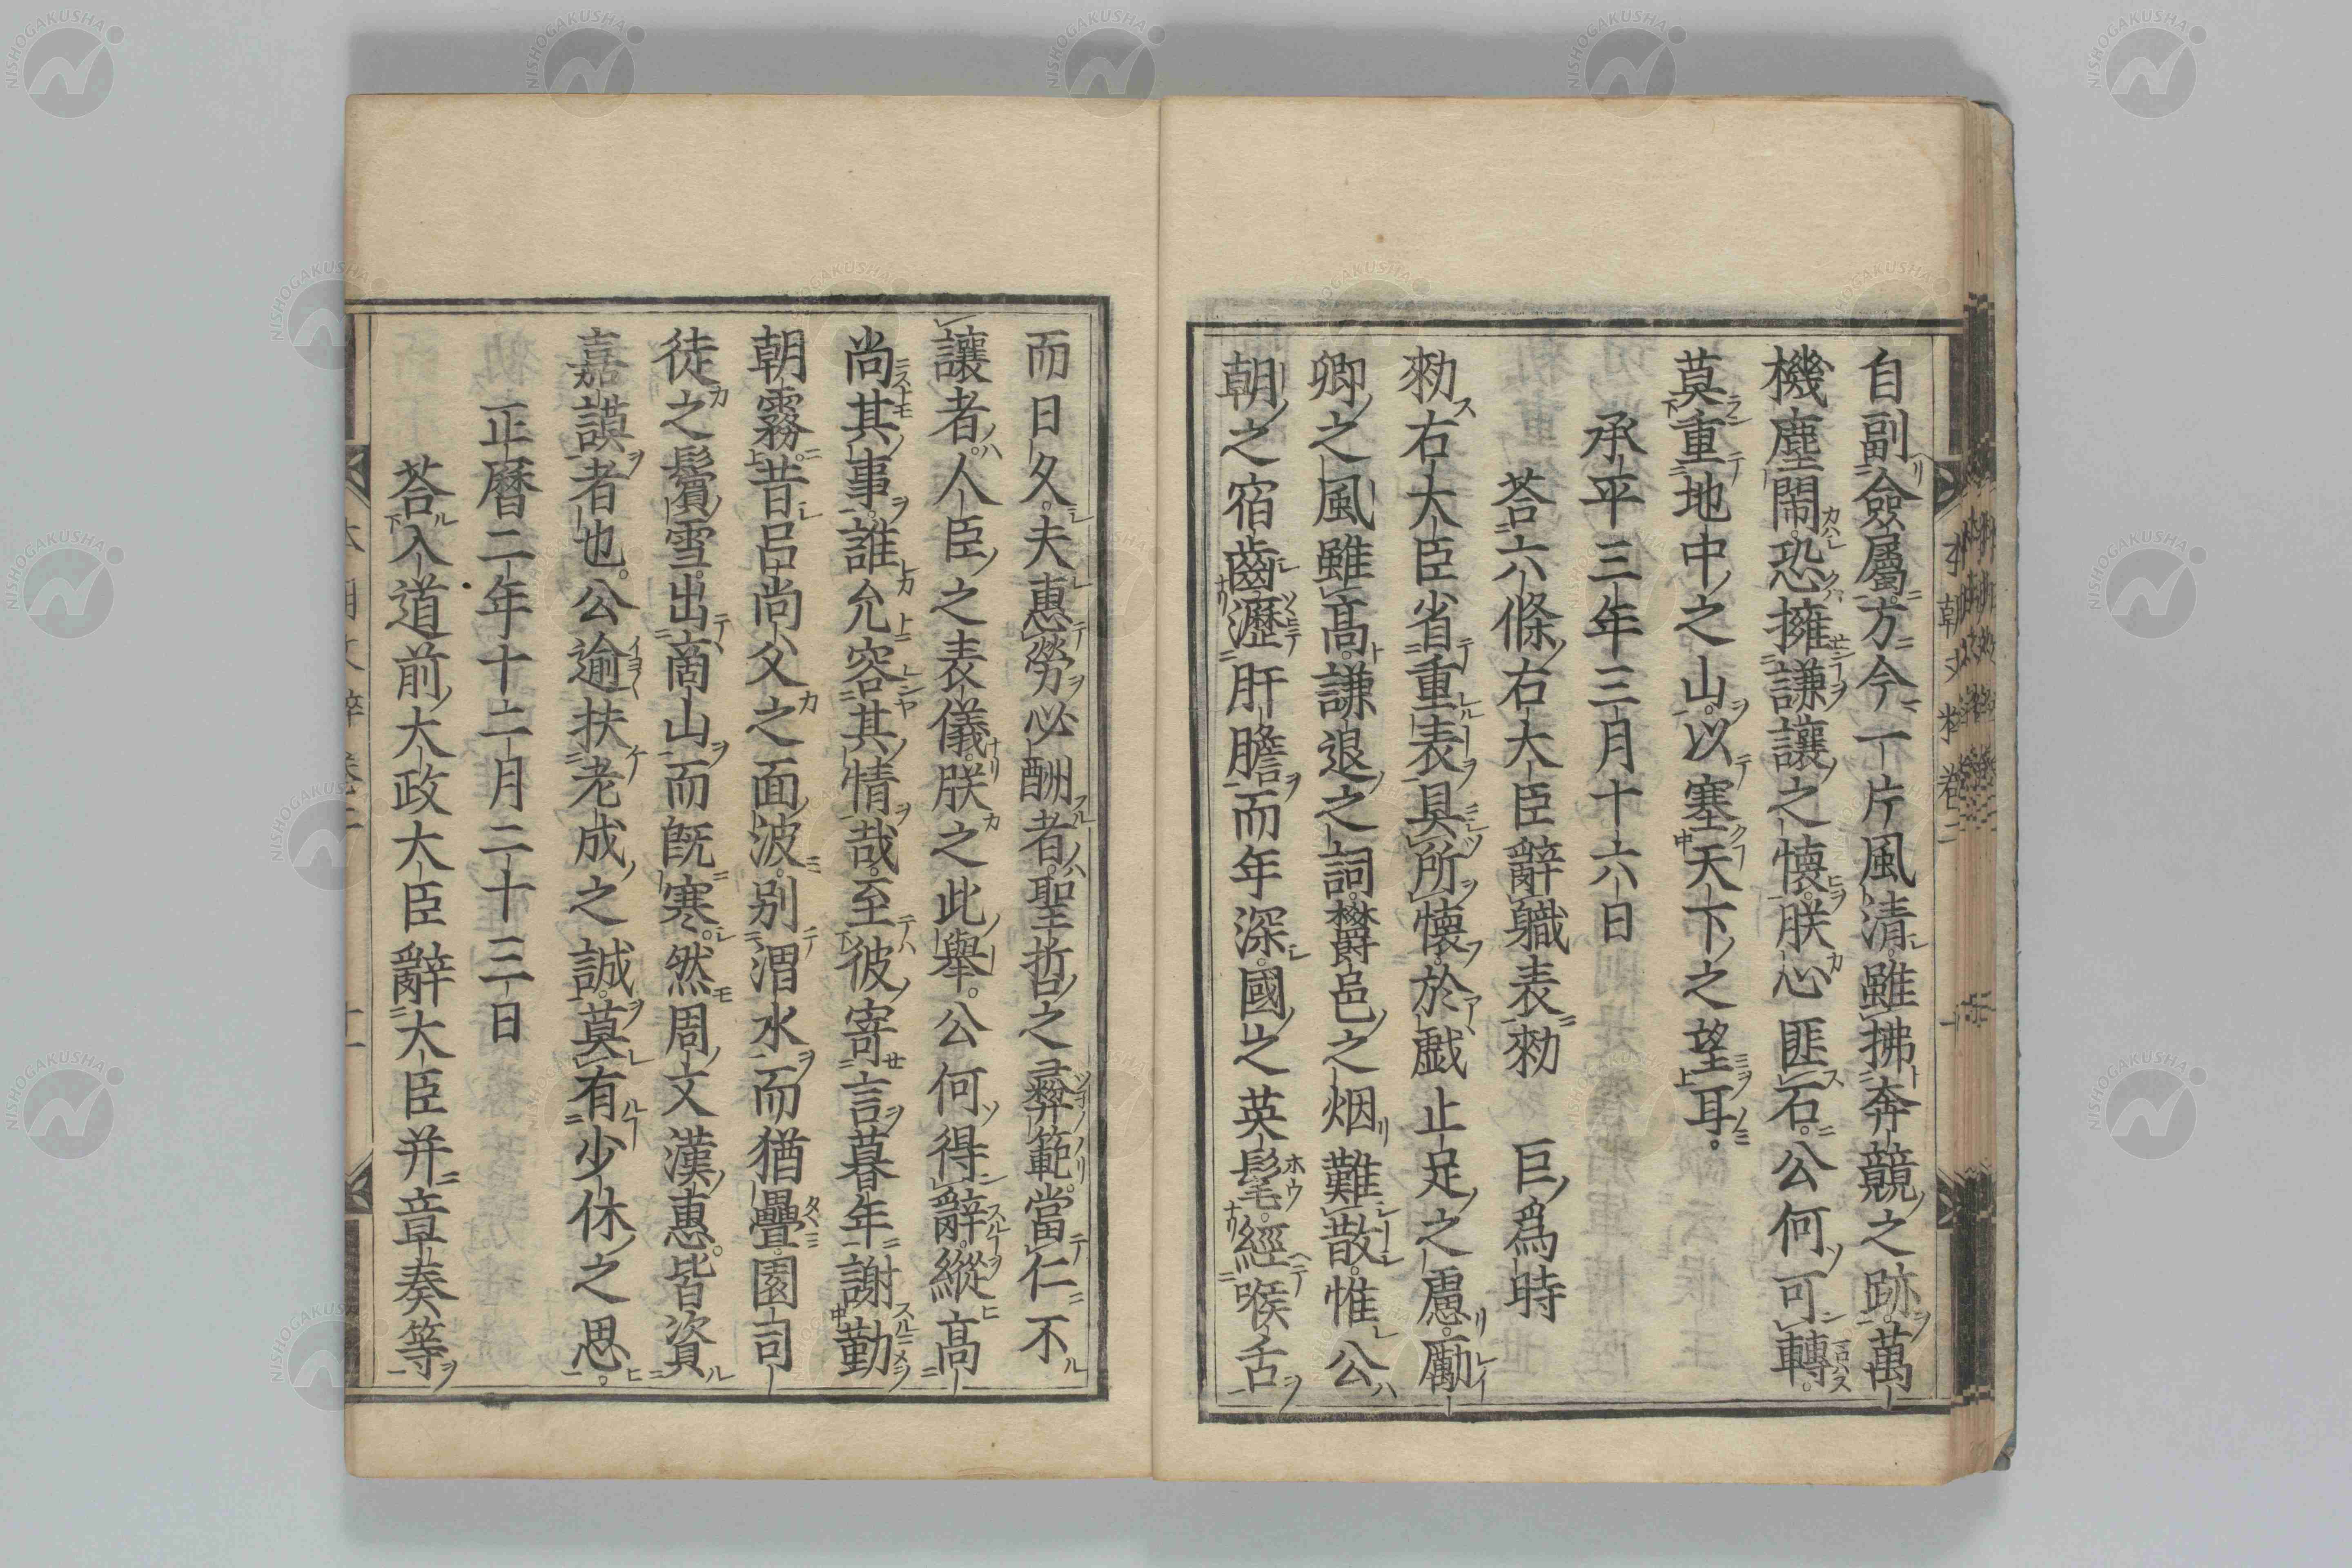 自副僉屬方今一片風清雖拂奔競之跡萬
機塵鬧恐擁謙讓之懷朕心匪石公何可轉
莫重地中之山以塞天下之望耳
承平三年三月十六日
荅六條右大臣辭職表勅 巨爲時
勅右大臣省重表具所懷於戯止足之慮勵
卿之風雖高謙退之詞欝邑之烟難散惟公
朝之宿齒瀝肝膽而年深國之英髦經喉舌
而日久夫惠勞必酬者聖哲之彛範當仁不
讓者人臣之表儀朕之此舉公何得辭縱高
尚其事誰允容其情哉至彼寄言暮年謝勤
朝霧昔呂尚父之面波別渭水而猶疊園司
徒之鬢雪出啇山而既寒然周文漢惠皆資
嘉謨者也公逾扶老成之誠莫有少休之思
正曆二年十二月二十三日
荅入道前大政大臣辭大臣并章奏等